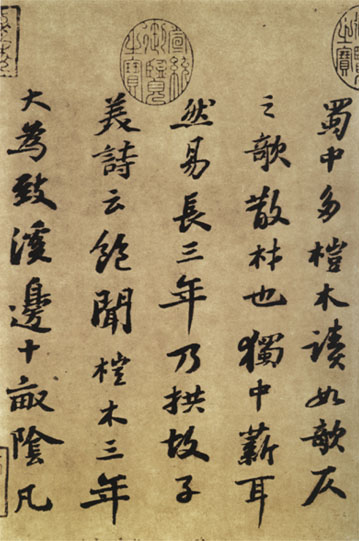 蜀中多榿木讀如欹仄
之欹散材也獨中薪耳
然易長三年乃拱故子
美詩云飽聞榿木三年
大為致溪邊十畝陰凡
宣統御覽之寶